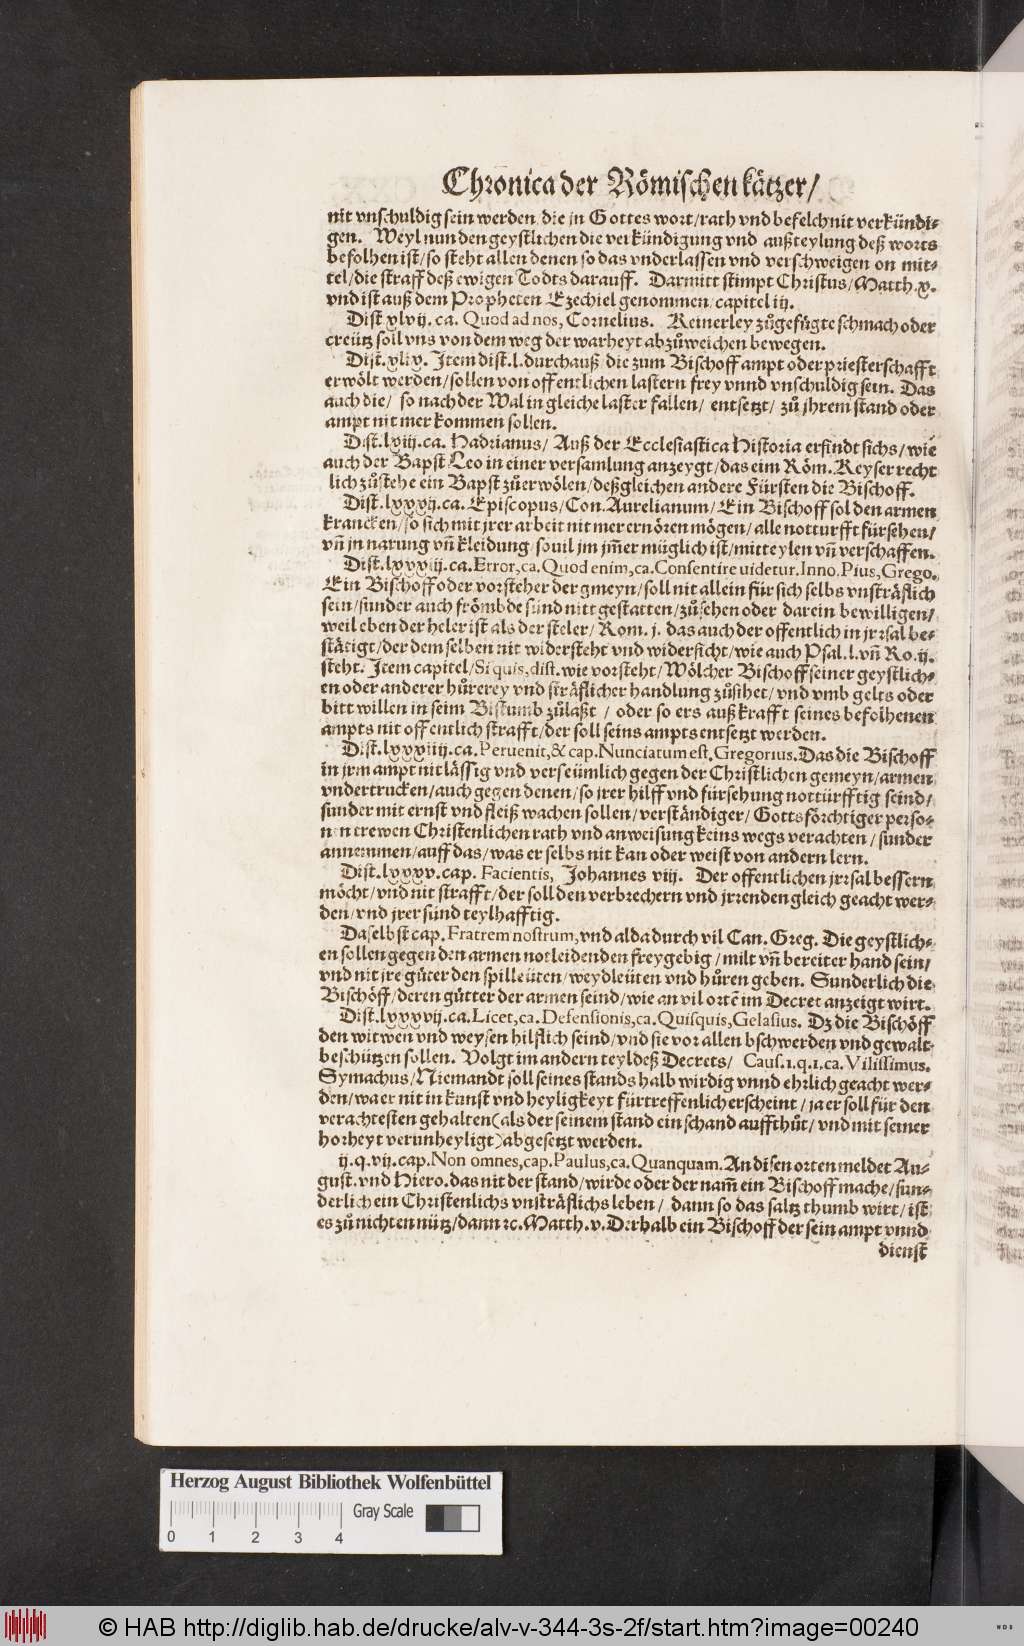 Chronica der Römischen kätzer/
nit vnschuldig sein werden, die jn Gottes wort/rath vnd befelch nit verkündi-
gen. Weyl nun den geystlichen die verkündigung vnd außteylung deß worts
befolhen ist/so steht allen denen so das vnderlassen vnd verschweigen on mit-
tel/die straff deß ewigen Todts darauff. Darmitt stimpt Christus/Matth.x.
vnd ist auß dem Propheten Ezechiel genommen/capitel iij.
Dist xlvij. ca. Quod ad nos, Cornelius. Keinerley zůgefügte schmach oder
creütz soll vns von dem weg der warheyt abzůweichen bewegen.
Dist.xlix. Item dist.l.durchauß die zum Bischoff ampt oder priesterschafft
erwölt werden/sollen von offentlichen lastern frey vnnd vnschuldig sein. Das
auch die/ so nach der Wal in gleiche laster fallen/ entsetzt/ zů jhrem stand oder
ampt nit mer kommen sollen.
Dist.lxiij.ca. Hadrianus/ Auß der Ecclesiastica Historia erfindt sichs/wie
auch der Bapst Leo in einer versamlung anzeygt/das eim Röm.Keyser recht
lich zůstehe ein Bapst zůerwölen/deßgleichen andere Fürsten die Bischoff.
Dist.lxxxij.ca.Episcopus/Con.Aurelianum/Ein Bischoff sol den armen
krancken/so sich mit jrer arbeit nit mer ernören mögen/alle notturfft fürsehen/
vn̄ jn narung vn̄ kleidung/souil jm jm̄er müglich ist/mitteylen vn̄ verschaffen.
Dist.lxxxiij.ca.Error,ca.Quod enim,ca.Consentire uidetur.Inno.Pius,Grego.
Ein Bischoff oder vorsteher der gmeyn/soll nit allein für sich selbs vnsträflich
sein/sunder auch frömbde sünd nitt gestatten/zůsehen oder darein bewilligen/
weil eben der heler ist als der steler/Rom.j. das auch der offentlich in jrrsal be-
stätigt/der dem selben nit widersteht vnd widersicht/wie auch Psal.l.vn̄ Ro.ij.
steht. Item capitel/Si quis,dist.wie vorsteht/Wölcher Bischoff seiner geystlich-
en oder anderer hůrerey vnd sträflicher handlung zůsihet/vnd vmb gelts oder
bitt willen in seim Bistumb zůlaßt / oder so ers auß krafft seines befolhenen
ampts nit offentlich strafft/der soll seins ampts entsetzt werden.
Dist.lxxxiiij.ca.Peruenit,& cap.Nunciatum est.Gregorius.Das die Bischoff
in jrm ampt nit lässig vnd verseümlich gegen der Christlichen gemeyn/armen
vndertrucken/auch gegen denen/so jrer hilff vnd fürsehung nottürfftig seind/
sunder mit ernst vnd fleiß wachen sollen/verständiger/Gottsförchtiger perso-
nen trewen Christenlichen rath vnd anweisung keins wegs verachten /sunder
annemmen/auff das/was er selbs nit kan oder weist von andern lern.
Dist.lxxxv.cap. Facientis, Johannes viij. Der offentlichen jrrsal bessern
möcht/vnd nit strafft/der soll den verbrechern vnd jrrenden gleich geacht wer-
den/vnd jrer sünd teylhafftig.
Daselbst cap.Fratrem nostrum,vnd alda durch vil Can.Greg. Die geystlich-
en sollen gegen den armen notleidenden freygebig /milt vn̄ bereiter hand sein/
vnd nit jre güter den spilleüten/weydleüten vnd hůren geben. Sunderlich die
Bischöff/deren gütter der armen seind/wie an vil ortē im Decret anzeigt wirt.
Dist.lxxxvij.ca.Licet,ca.Defensionis,ca.Quisquis,Gelasius. Dz die Bischöff
den witwen vnd weysen hilflich seind/vnd sie vor allen bschwerden vnd gewalt
beschützen sollen. Volgt im andern teyl deß Decrets/ Caus.1.q.1.ca.Vilissimus.
Symachus/Niemandt soll seines stands halb wirdig vnnd ehrlich geacht wer-
den/wa er nit in kunst vnd heyligkeyt fürtreffenlich erscheint /ja er soll für den
verachtesten gehalten(als der seinem stand ein schand auffthůt/ vnd mit seiner
horheyt verunheyligt)abgesetzt werden.
ij.q.vij.cap.Non omnes,cap.Paulus,ca.Quanquam.An disen orten meldet Au-
gust.vnd Hiero.das nit der stand/wirde oder der nam̄ ein Bischoff mache/sun-
derlich ein Christenlichs vnsträflichs leben/ dann so das saltz thumb wirt/ist
es zů nichten nütz/dann ꝛc.Matth.v.Derhalb ein Bischoff der sein ampt vnnd
dienst
Herzog August Bibliothek Wolfenbüttel
Gray Scale
0 1 2 3 4
© HAB http://diglib.hab.de/drucke/alv-v-344-3s-2f/start.htm?image=00240